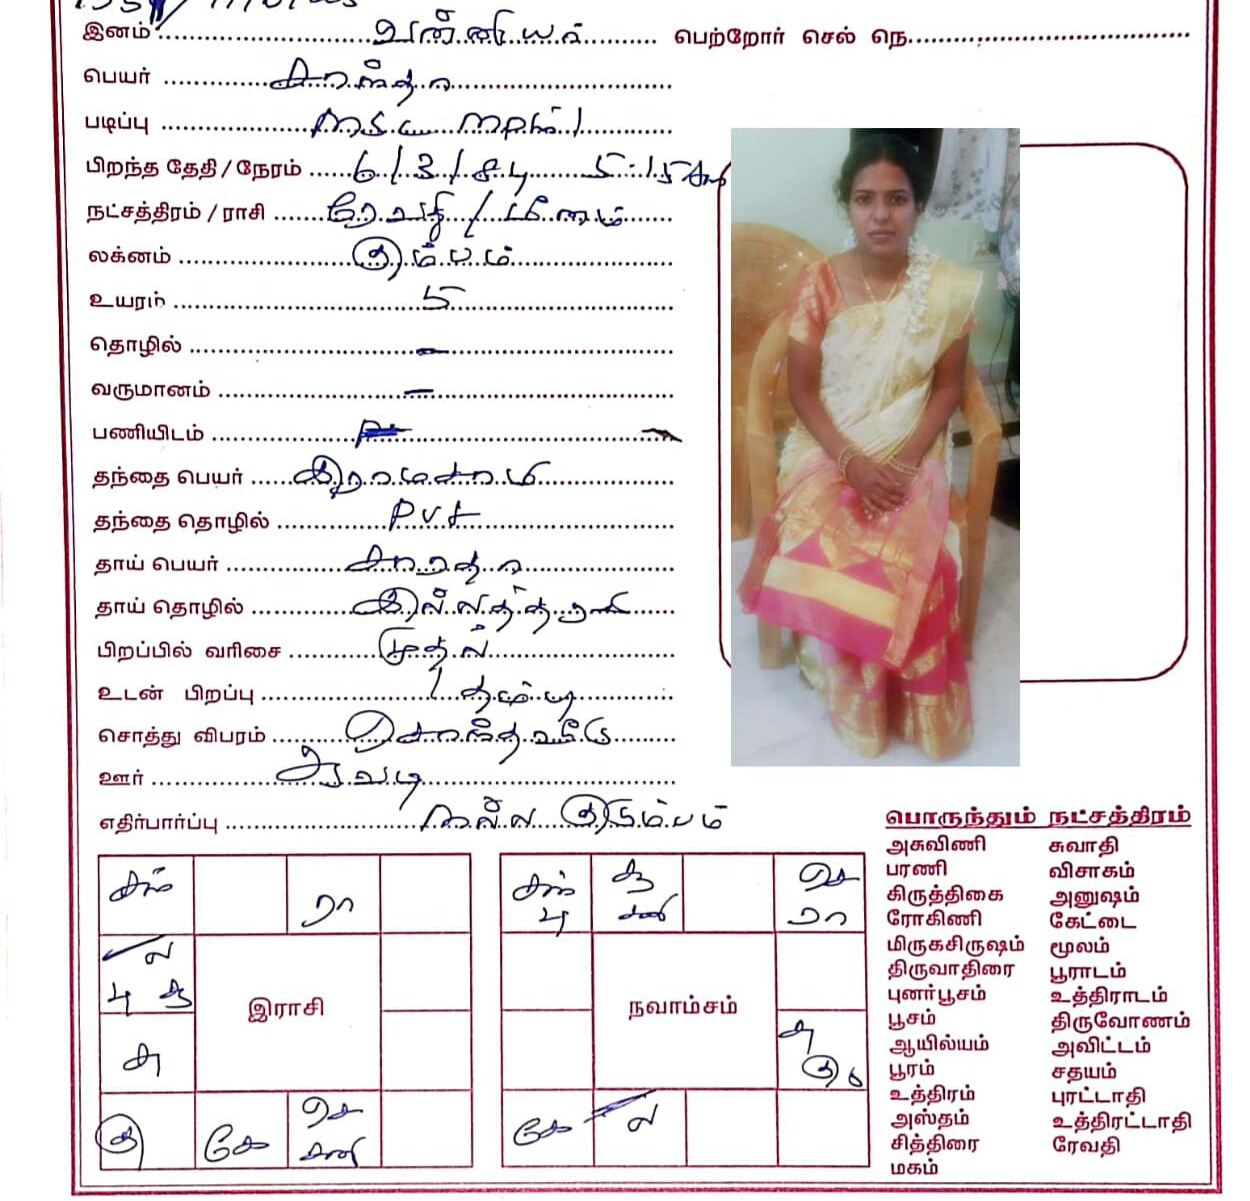 இனம் வன்னியர் பெற்றோர் செல் நெ.
பெயர் சாந்தா
படிப்பு
பிறந்த தேதி / நேரம் 6/3/84 5.15 Am
நட்சத்திரம் / ராசி ரேவதி / மீனம்
லக்னம் கும்பம்
உயரம் 5
தொழில் -
வருமானம் -
பணியிடம்
தந்தை பெயர்
தந்தை தொழில் Pvt
தாய் பெயர் சாரதா
தாய் தொழில் இல்லத்தரசி
பிறப்பில் வரிசை முதல்
உடன் பிறப்பு 1 தம்பி
சொத்து விபரம் சொந்த வீடு
ஊர் ஆவடி
எதிர்பார்ப்பு நல்ல குடும்பம்
சந் ரா
ல
பு சூ
இராசி
சு
கு கே செ சனி
சந் பு சூ சனி செ ரா
நவாம்சம்
சு
குரு
கே ல
பொருந்தும் நட்சத்திரம்
அசுவிணி சுவாதி
பரணி விசாகம்
கிருத்திகை அனுஷம்
ரோகிணி கேட்டை
மிருகசிருஷம் மூலம்
திருவாதிரை பூராடம்
புனர்பூசம் உத்திராடம்
பூசம் திருவோணம்
ஆயில்யம் அவிட்டம்
பூரம் சதயம்
உத்திரம் புரட்டாதி
அஸ்தம் உத்திரட்டாதி
சித்திரை ரேவதி
மகம்